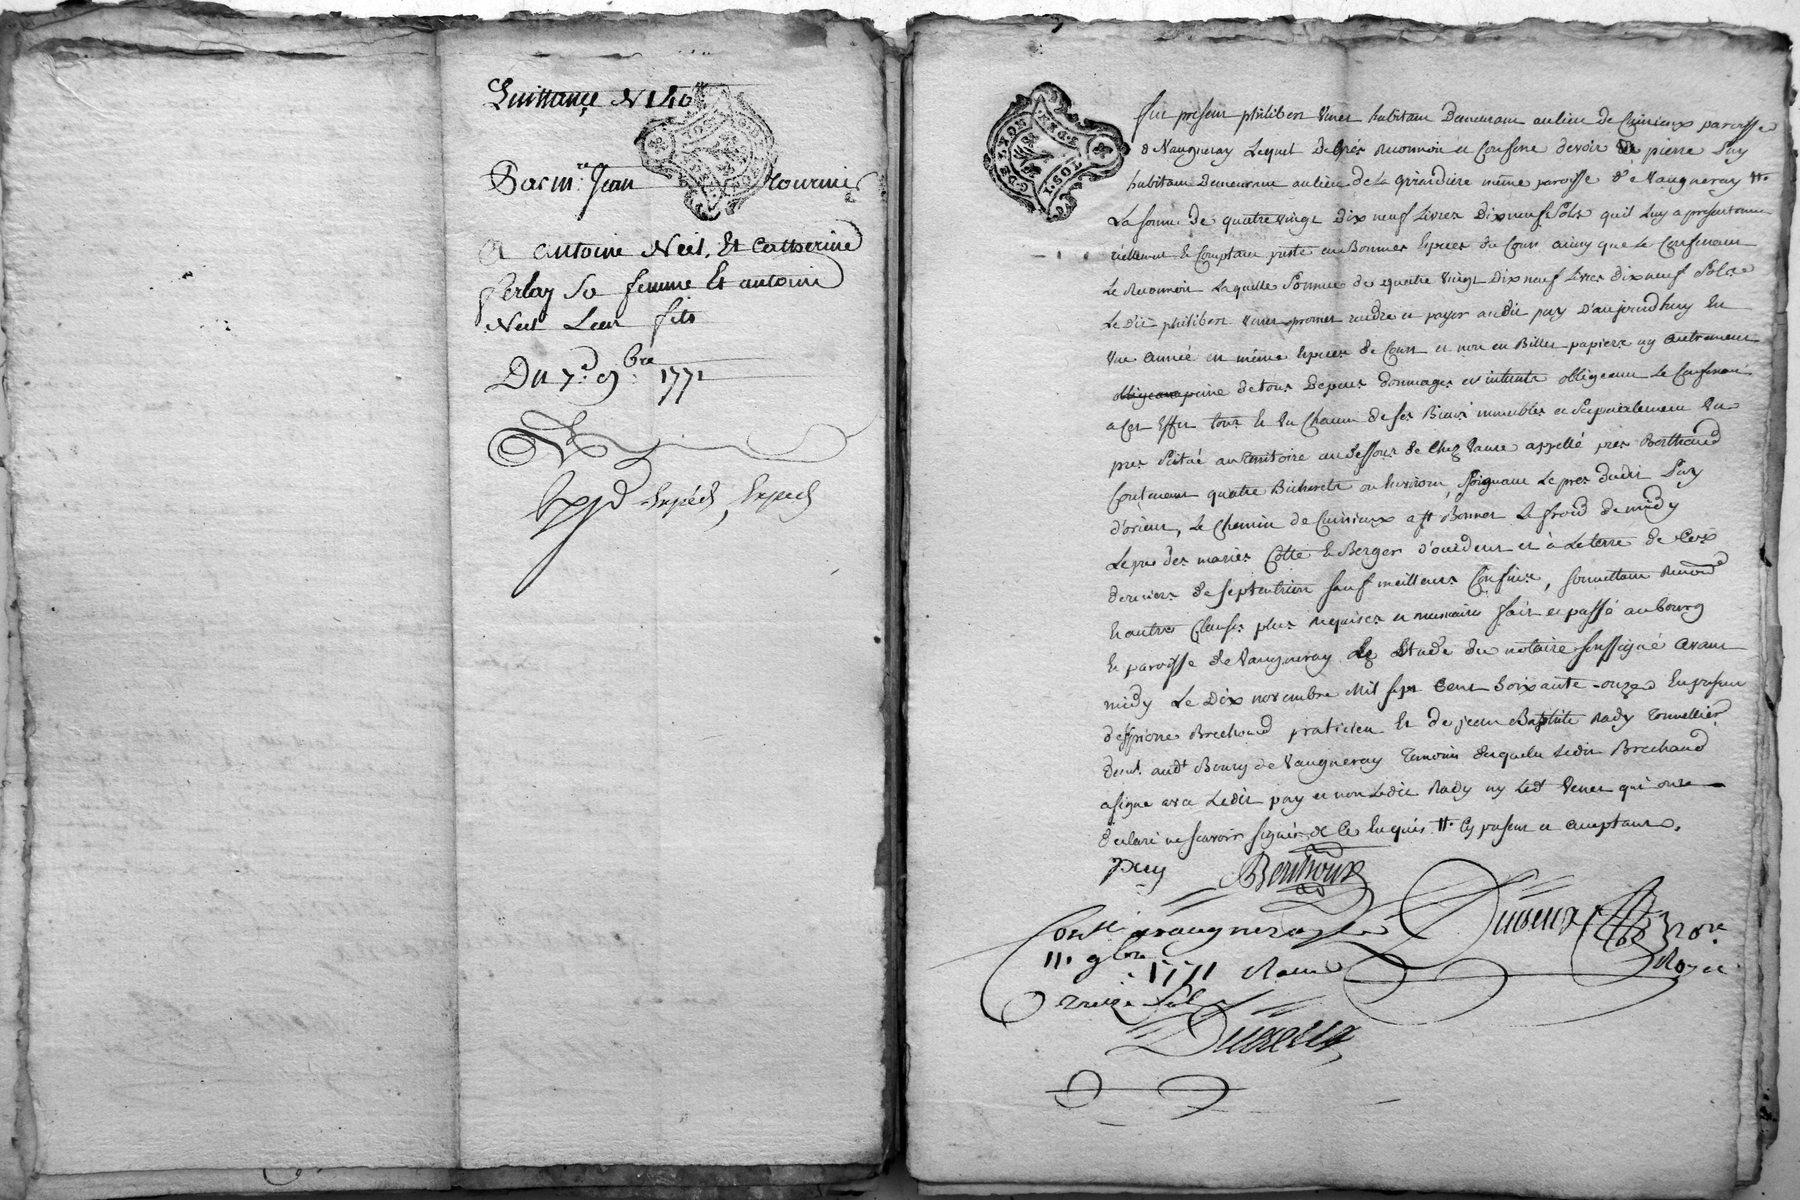 Quittance N 140
Par m.re Jean Tournier
A antoine Neel, Et Catherine
Perlay Sa femme Et antoine
Neel Leur fils
Du 7.e 9.bre 1771
Expéd. Expéd
GDE LYON
1. SOL
Fut présent philibert Venet habitant Demeurant au lieu de Cuinieux paroisse
de Vaugneray Lequel De Gré Reconnoit et Confesse devoir à pierre Puy
habitant Demeurant au lieu de La Girardiere même paroisse de Vaugneray #.
La somme de quatre vingt Dix neuf Livres Dix neuf Sols qu'il Luy a présentement
réellement et Comptant prêté en Bonnes Especes du Cours ainsy que le Confessant
Le Reconnoit Laquelle Somme de quatre vingt Dix neuf Livres dix neuf Sols
Ledit philibert Venet promet rendre et payer audit puy D'aujourdhuy En
Une année en même Especes de Cours et non en Billets papiers ny autrement
peine de tous Depens dommages et interets obligeant Le Confessant
a cet Effet tous et Un Chacun de ses Biens immeubles et Specialement Un
prés Scitué au territoire au dessous de Chez Vance appellé prés Berthaud
Contenant quatre Bicherets ou Environ, Joignant Le prés dudit Puy
d'orient, Le Chemin de Cuinieux a st Bonnet Le froid de midy
Le pré des mariés Cotte et Berger d'occident et à La terre de Ces
derniers de septentrion sauf meilleurs Confins, soumettant Renonc.
Et autres Clauses plus requises et necessaires fait et passé au bourg
Et paroisse de Vaugneray Etude du notaire soussigné avant
midy Le Dix novembre Mil sept Cent soixante onze En présence
d'Etienne Brechoud praticien Et de jean Baptiste Rady Tonnellier
dem.t aud.t Bourg de Vaugneray Temoins desquels ledit Brechaud
a signé avec Ledit puy et non Ledit Rady ny Led.t Venet qui ont
déclaré ne scavoir signer de Ce Enquis #. Cy present et acceptant.
puy
Conll.e a vaugneray Le
11. 9bre 1771 Recu
treize sols
Duvieux
Duvieux no.re
Royal